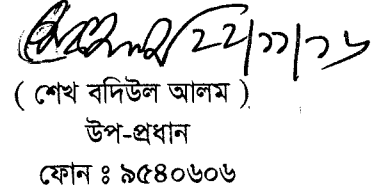 ২২/১১/১৬
( শেখ বদিউল আলম )
উপ-প্রধান
ফোন ঃ ৯৫৪০৬০৬